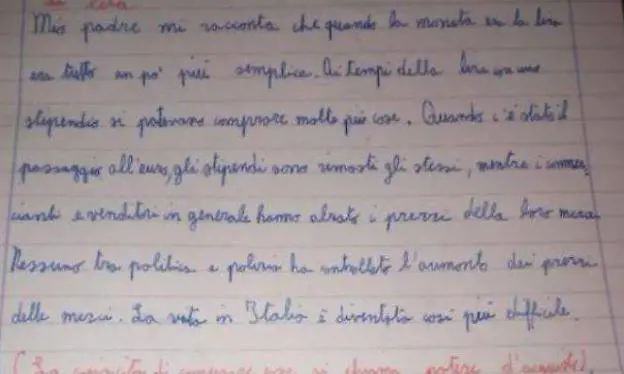 di lira
Mio padre mi racconta che quando la moneta era la lira
era tutto un po' più semplice. Ai tempi della lira con uno
stipendio si potevano comprare molte più cose. Quando c'è stato il
passaggio all'euro, gli stipendi sono rimasti gli stessi, mentre i commer
cianti e venditori in generale hanno alzato i prezzi della loro merce
Nessuno tra politici e polizia ha controllato l'aumento dei prezzi
delle merci. La vita in Italia è diventata così più difficile.
(La capacità di comprare cose si chiama potere d'acquisto).